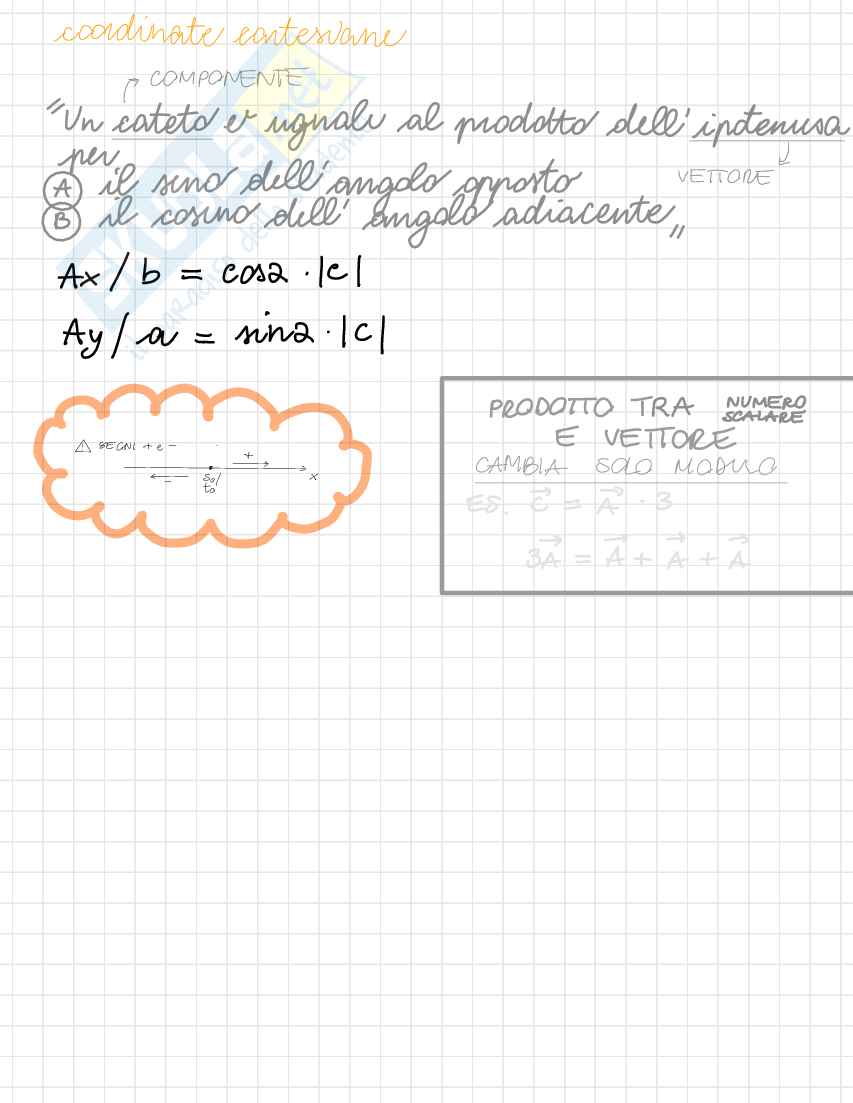 coordinate cartesiane
COMPONENTE
"Un cateto è uguale al prodotto dell'ipotenusa
per
VETTORE
A il seno dell'angolo opposto
B il coseno dell'angolo adiacente"
Ax / b = cos2 · |c|
Ay / a = sin2 · |c|
PRODOTTO TRA NUMERO SCALARE
E VETTORE
CAMBIA SOLO MODULO
ES. C = A · 3
3A = A + A + A
⚠ SEGNI + e -
+
-
S0/
t0
x
SKUOLA.net